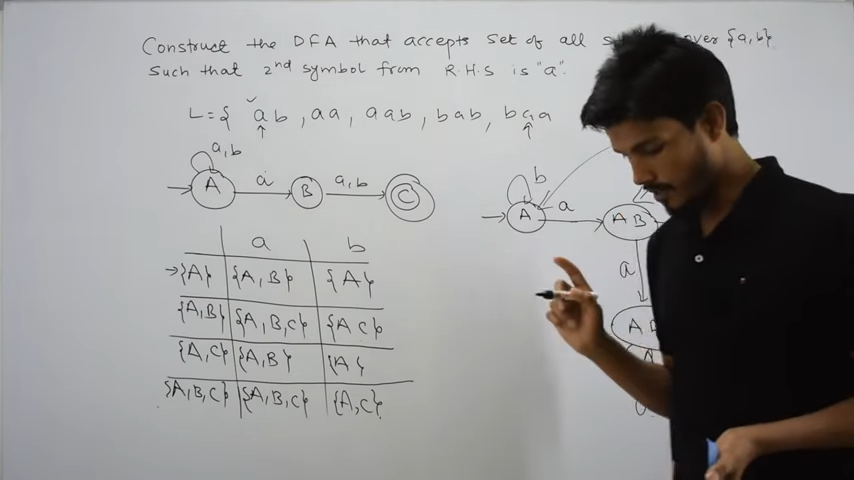 Construct the DFA that accepts set of all s over {a,b}
such that 2nd symbol from R.H.S is "a".
L={ ab, aa, aab, bab, baa
a,b
A a B a,b C
b
A a AB
a
A B
a b
→{A} {A,B} {A}
{A,B} {A,B,C} {A C}
{A,C} {A,B} {A}
{A,B,C} {A,B,C} {A,C}